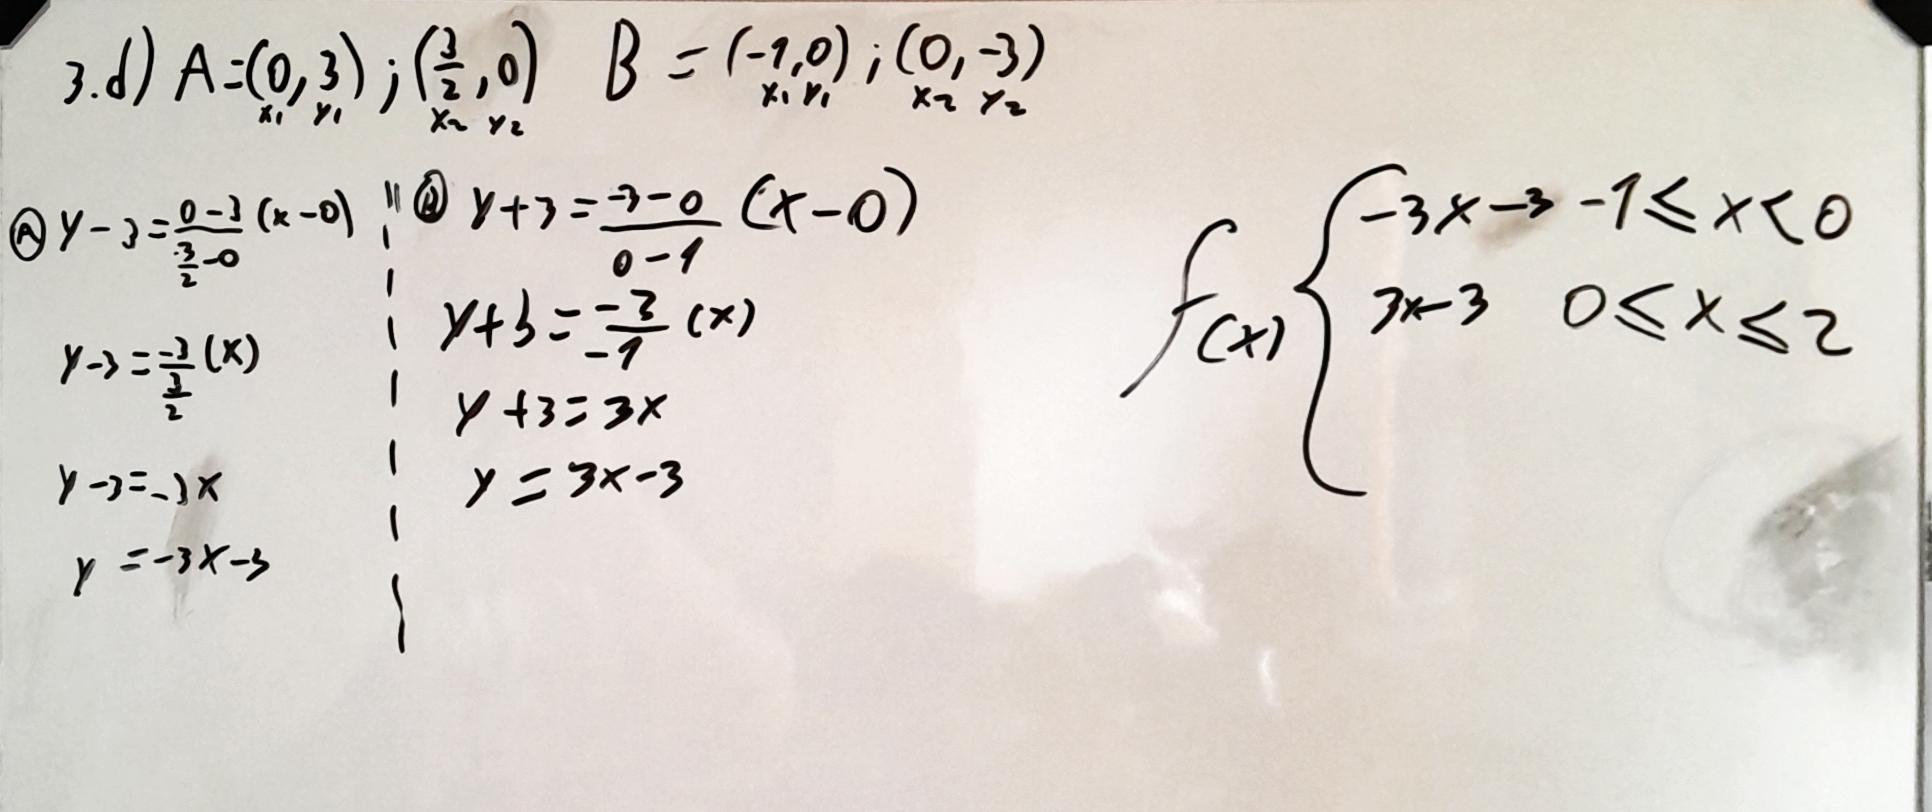 3.d) A=(0,3);(3/2,0) B=(-1,0);(0,-3)
x₁ y₁ x₂ y₂ x₁ y₁ x₂ y₂
Ⓐ y-3=(0-3)/(3/2-0) (x-0)
y-3=-3/(3/2) (x)
y-3=-3x
y=-3x-3
y+3=(-3-0)/(0-1) (x-0)
y+3=-3/-1 (x)
y+3=3x
y=3x-3
f(x) {
-3x-3 -1≤x<0
3x-3 0≤x≤2